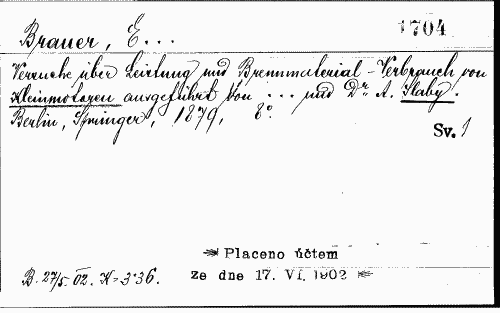 Brauer, E...
1704
Versuche über Leistung und Brennmaterial-Verbrauch von
Kleinmotoren ausgeführt von ... und Dr. A. Slaby.
Berlin, Springer, 1879, 8°.
Sv. 1
Placeno účtem
B. 27/5. 02. K=3·36.
ze dne 17. VI. 1902